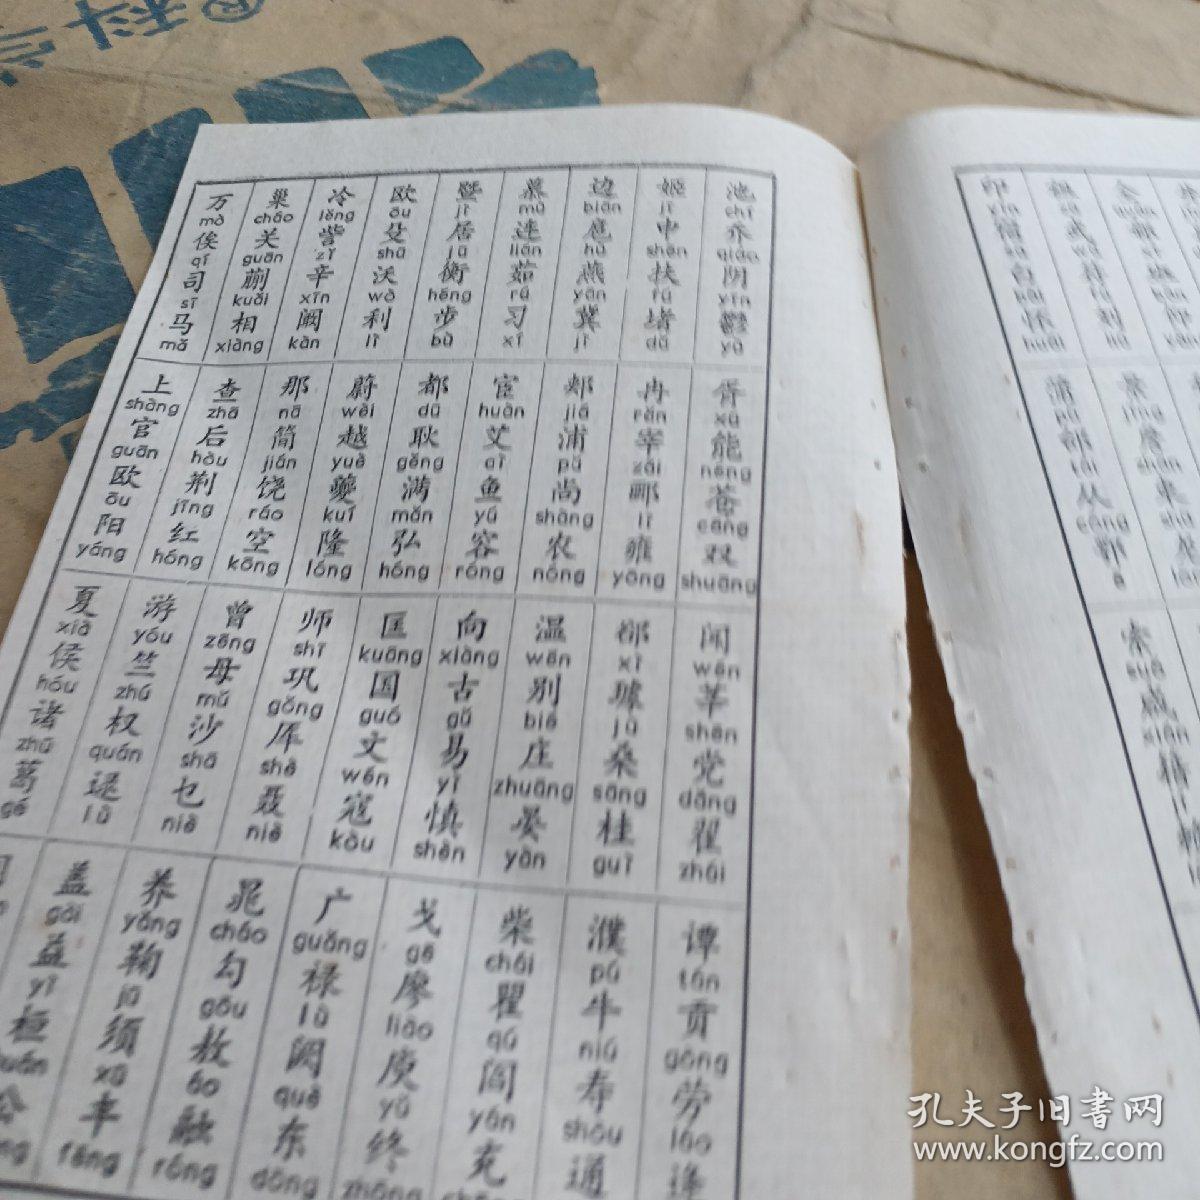 景 jǐng 詹 zhān 束
印 yìn 宿 白 bái 怀 huái
蒲 pú 邰 tái 从 cóng 鄂 è
索 suǒ 咸 xián 籍
池 chí 乔 qiáo 阴 yīn 鬱 yù
胥 xū 能 nèng 苍 cāng 双 shuāng
闻 wén 莘 shēn 党 dǎng 翟 zhái
谭 tán 贡 gòng 劳 láo 逄
姬 jī 申 shēn 扶 fú 堵 dǔ
冉 rǎn 宰 zǎi 郦 lì 雍 yōng
郤 xì 璩 jù 桑 sāng 桂 guì
濮 pú 牛 niú 寿 shòu 通
边 biān 扈 hù 燕 yān 冀 jì
郏 jiá 浦 pǔ 尚 shàng 农 nóng
温 wēn 别 bié 庄 zhuāng 晏 yàn
柴 chái 瞿 qú 阎 yán 充
慕 mù 连 lián 茹 rú 习 xí
宦 huàn 艾 ài 鱼 yú 容 róng
向 xiàng 古 gǔ 易 yì 慎 shèn
戈 gē 廖 liào 庾 yǔ 终 zhōng
暨 jì 居 jū 衡 héng 步 bù
都 dū 耿 gěng 满 mǎn 弘 hóng
匡 kuāng 国 guó 文 wén 寇 kòu
广 guǎng 禄 lù 阙 què 东 dōng
欧 ōu 殳 shū 沃 wò 利 lì
蔚 wèi 越 yuè 夔 kuí 隆 lóng
师 shī 巩 gǒng 厍 shè 聂 niè
晁 cháo 勾 gōu 敖 áo 融 róng
冷 lěng 訾 zǐ 辛 xīn 阚 kàn
那 nā 简 jiǎn 饶 ráo 空 kōng
曾 zēng 毋 mú 沙 shā 乜 niè
养 yǎng 鞠 jū 须 xū 丰 fēng
巢 cháo 关 guān 蒯 kuǎi 相 xiàng
查 zhā 后 hòu 荆 jīng 红 hóng
游 yóu 竺 zhú 权 quán 逯 lù
盖 gài 益 yì 桓 公
万 mò 俟 qí 司 sī 马 mǎ
上 shàng 官 guān 欧 ōu 阳 yáng
夏 xià 侯 hóu 诸 zhū 葛 gě
孔夫子旧书网
www.kongfz.com